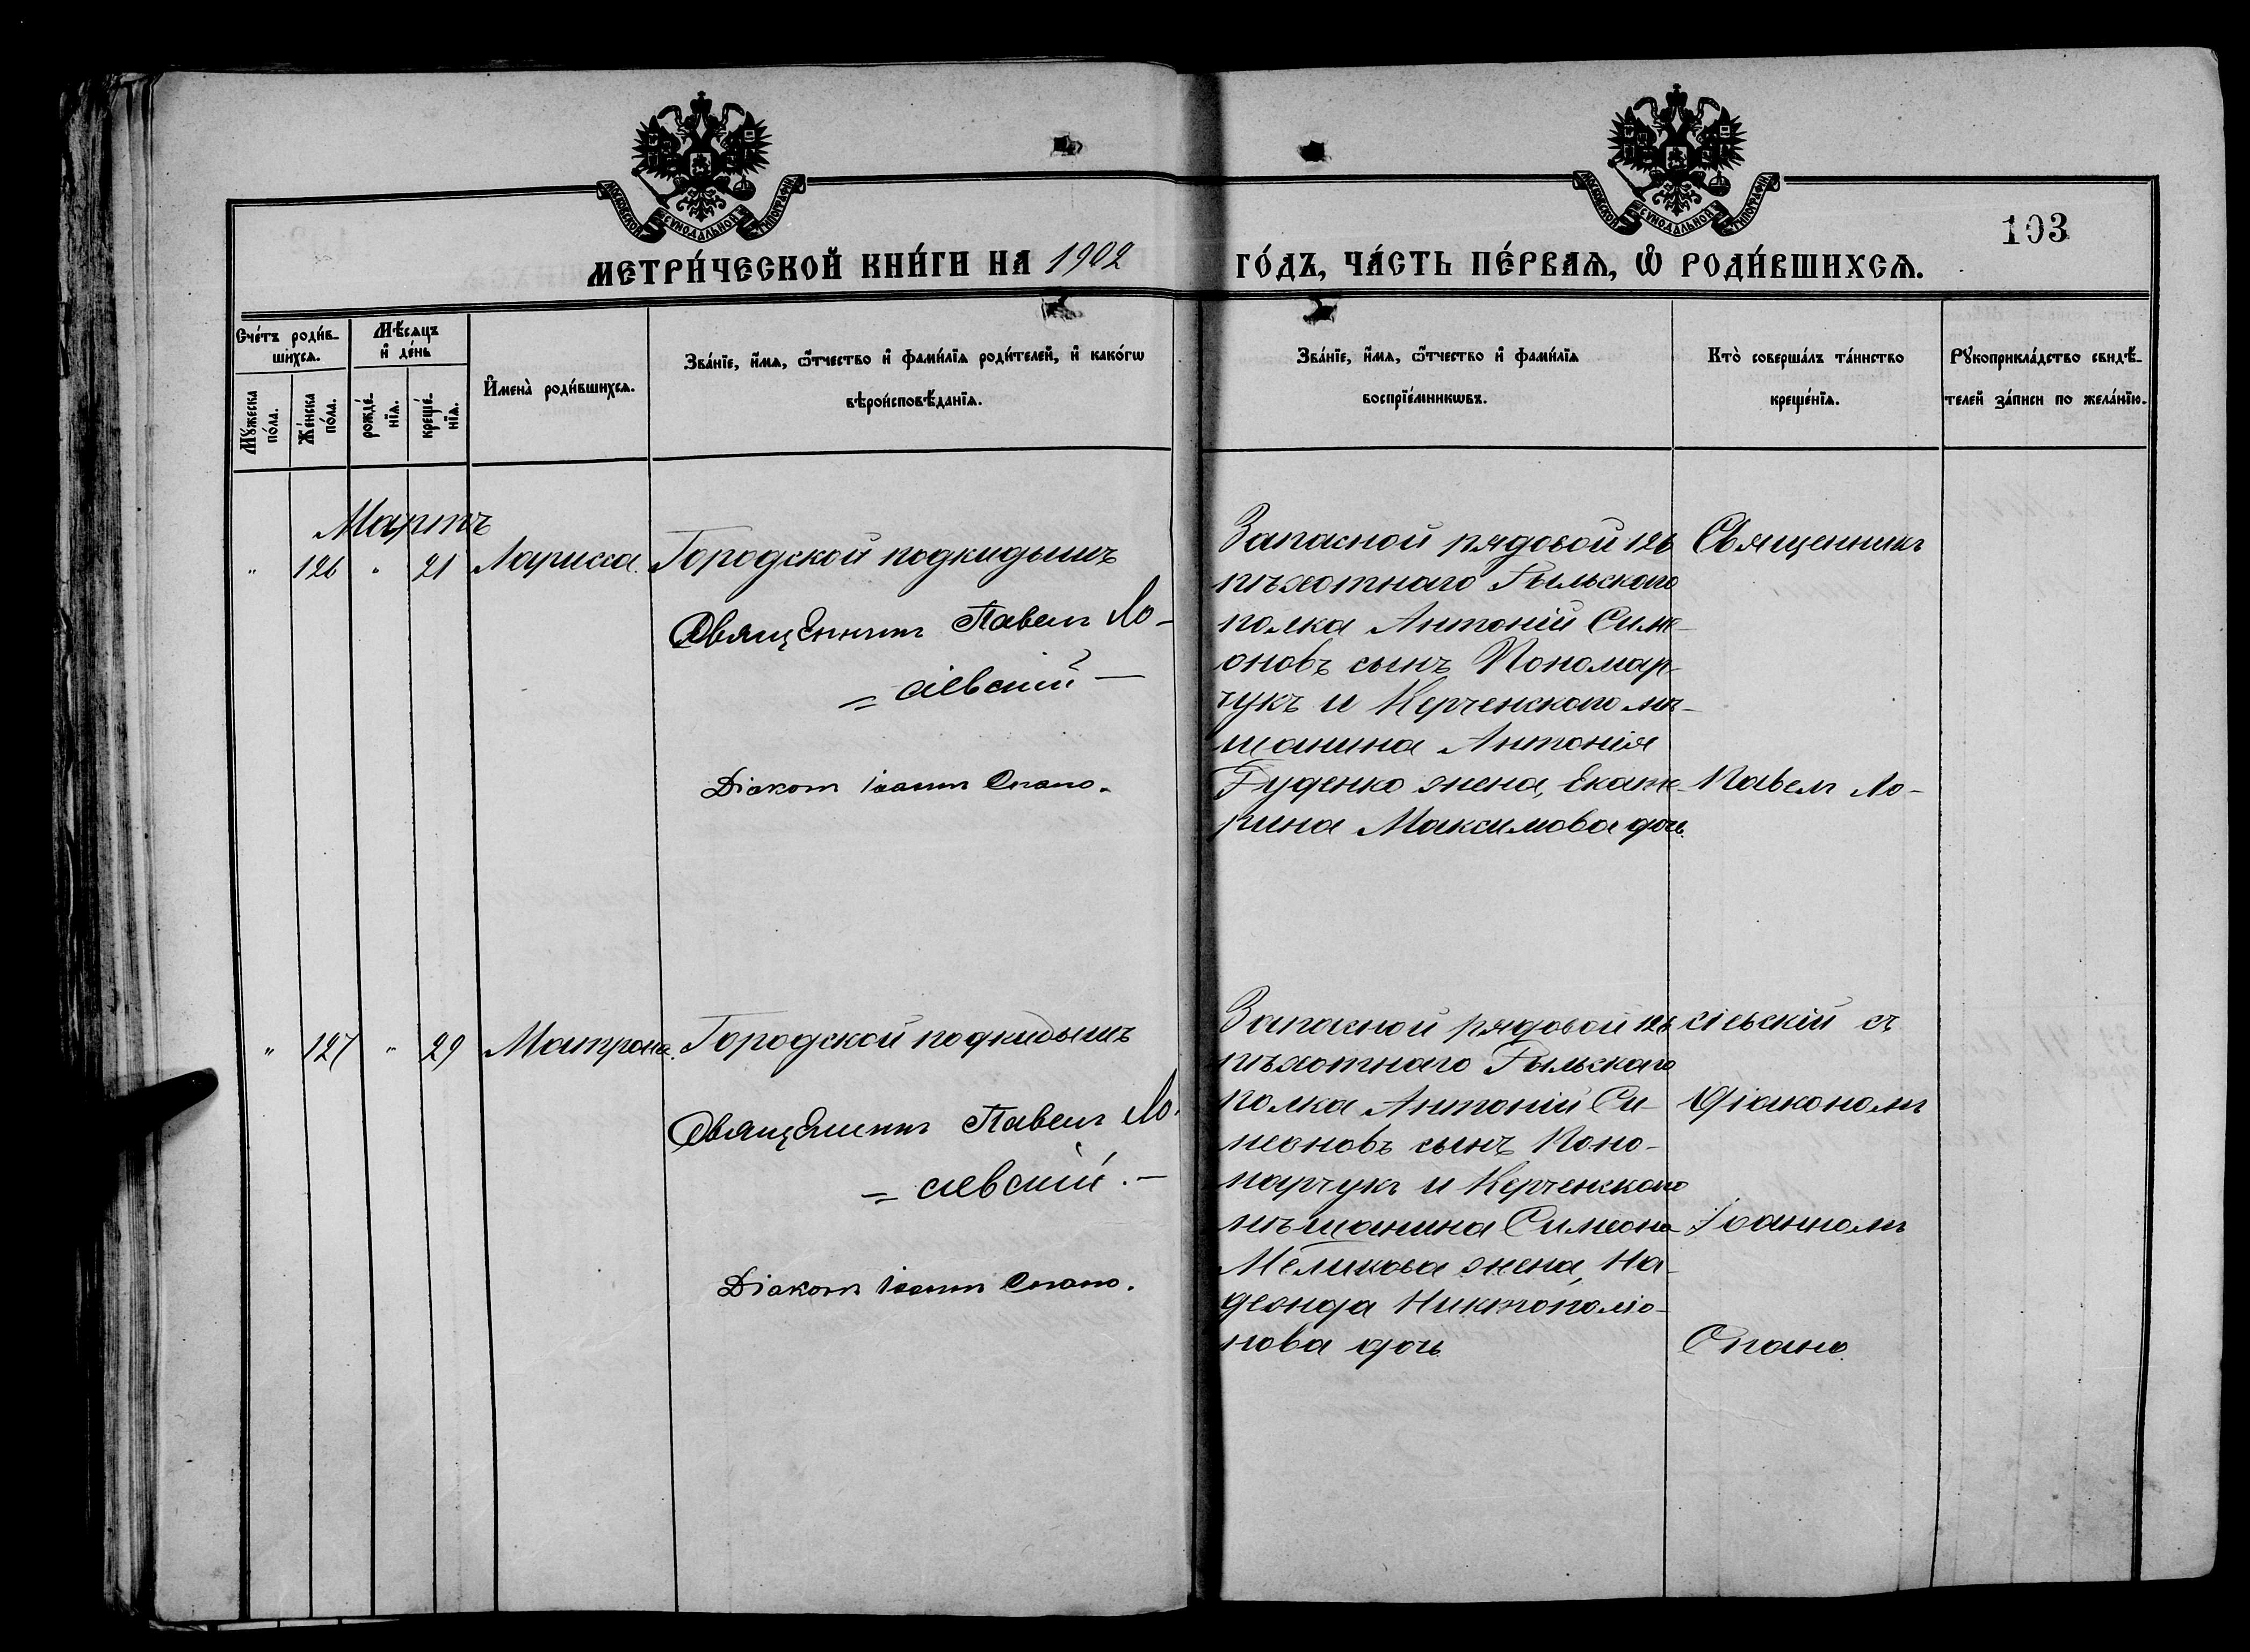 МОСКОВСКОЙ СѴНОДАЛЬНОЙ ТИПОГРАФІИ
МОСКОВСКОЙ СѴНОДАЛЬНОЙ ТИПОГРАФІИ
103
МЕТРИ́ЧЕСКОЙ КНИ́ГИ НА 1902 ГО́ДЪ, ЧА́СТЬ ПЕ́РВАѦ, Ѽ РОДИ́ВШИХСѦ.
Счéтъ роди́в-
шихсѧ.
Мꙋ́жеска
по́ла.
Же́нска
по́ла.
Мѣ́сѧцъ
и҆ де́нь
рожде́-
нїѧ.
креще́-
нїѧ.
И҆мена̀ роди́вшихсѧ.
Зва́нїе, и҆́мѧ, ѻ҆́тчество и҆ фами́лїѧ роди́телей, и҆ како́гѡ
вѣроисповѣ́данїѧ.
Зва́нїе, и҆́мѧ, ѻ҆́тчество и҆ фами́лїѧ
воспрїе́мникѡвъ.
Кто̀ соверша́лъ та́инство
креще́нїѧ.
Рꙋкоприкла́дство свидѣ́-
телей за́писи по жела́нїю.
Мартъ
" 126 " 21 Лариса. Городской подкидышъ
Священникъ Павелъ Ло-
= сіевскій —
Діаконъ Іоаннъ Спано.
Запасной рядовой 126
пѣхотнаго Рыльскаго
полка Антоній Симе-
оновъ сынъ Пономар-
чукъ и Керченскаго мѣ-
щанина Антонія
Руденко жена, Екате-
рина Максимова дочь.
Священникъ
Павелъ Ло-
" 127 " 29 Матрона. Городской подкидышъ
Священникъ Павелъ Ло-
= сіевскій. —
Діаконъ Іоаннъ Спано.
Запасной рядовой 126
пѣхотнаго Рыльскаго
полка Антоній Си-
меоновъ сынъ Поно-
марчукъ и Керченскаго
мѣщанина Симеона
Меликова жена,
нова дочь
сіевскій съ
Діакономъ
Іоанномъ
Спано.